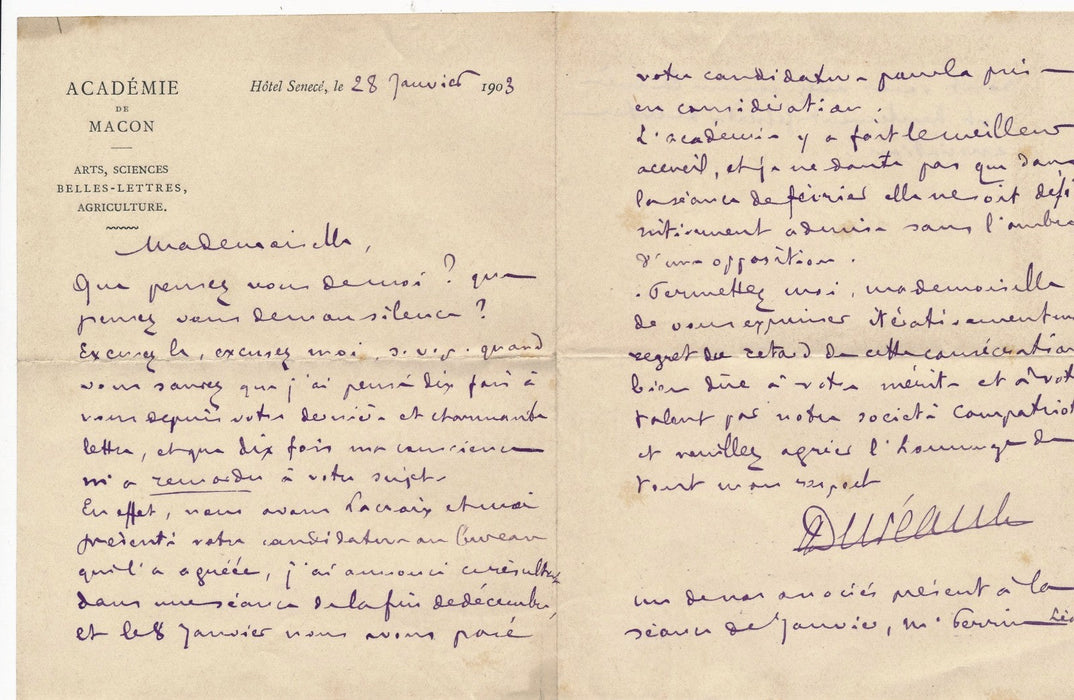 ACADÉMIE
DE
MACON
ARTS, SCIENCES
BELLES-LETTRES,
AGRICULTURE.
Hôtel Senecé, le 28 Janvier 1903
Mademoiselle,
Que pensez vous de moi ? que
pensez vous de mon silence ?
Excusez le, excusez moi, s. v. p. quand
vous saurez que j'ai pensé dix fois à
vous depuis votre dernière et charmante
lettre, et que dix fois ma conscience
m'a remordu à votre sujet.
En effet, nous avons Lacroix et moi
présenté votre candidature au bureau
qui l'a agréée, j'ai annoncé ce résultat
dans une séance de la fin de décembre,
et le 8 Janvier nous avons posé
votre candidature pour la prise
en considération.
L'académie y a fait le meilleur
accueil, et je ne doute pas que dans
la séance de février elle ne soit défi
nitivement admise sans l'ombre
d'une opposition.
Permettez moi, mademoiselle
de vous exprimer itérativement un
regret du retard de cette consécration
bien dûe à votre mérite et à vot
talent par notre société compatriot
et veuillez agréer l'hommage de
tout mon respect
un de nos associés présent à la
séance de Janvier, M. Perrin Léo